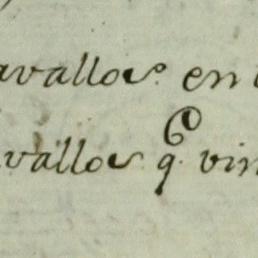 avallos en
vallos q. vin